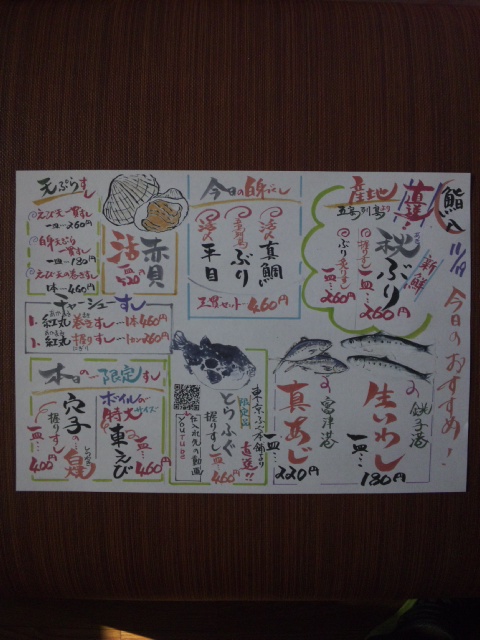 鮨八
11/19
今日のおすすめ!
産地直送
五島列島より
新鮮
秋ぶり
握りすし
一皿…260円
ぶり巻きすし
一皿…260円
銚子港
生いわし
一皿…180円
富津港
真あじ
一皿…220円
今日の白身づくし
活〆真鯛
五島列島ぶり
活〆平目
三貫セット…460円
赤貝
活
天ぷらすし
えび天一貫すし
一皿—260円
白身天ぷら
一貫すし
一皿—180円
えび天の巻きすし
1本—460円
チャーシューすし
1. 紅丸巻きすし—1本460円
1. 紅丸握りすし—1カン260円
東京ふぐ本舗より
直送!!
限定品
とらふぐ
握りすし一皿460円
仕入れ先の動画
YouTube
本日の一限定すし
ボイルの
特大サイズ
東えび
一皿…460円
穴子の白焼
しらやき
握りすし
一皿…400円